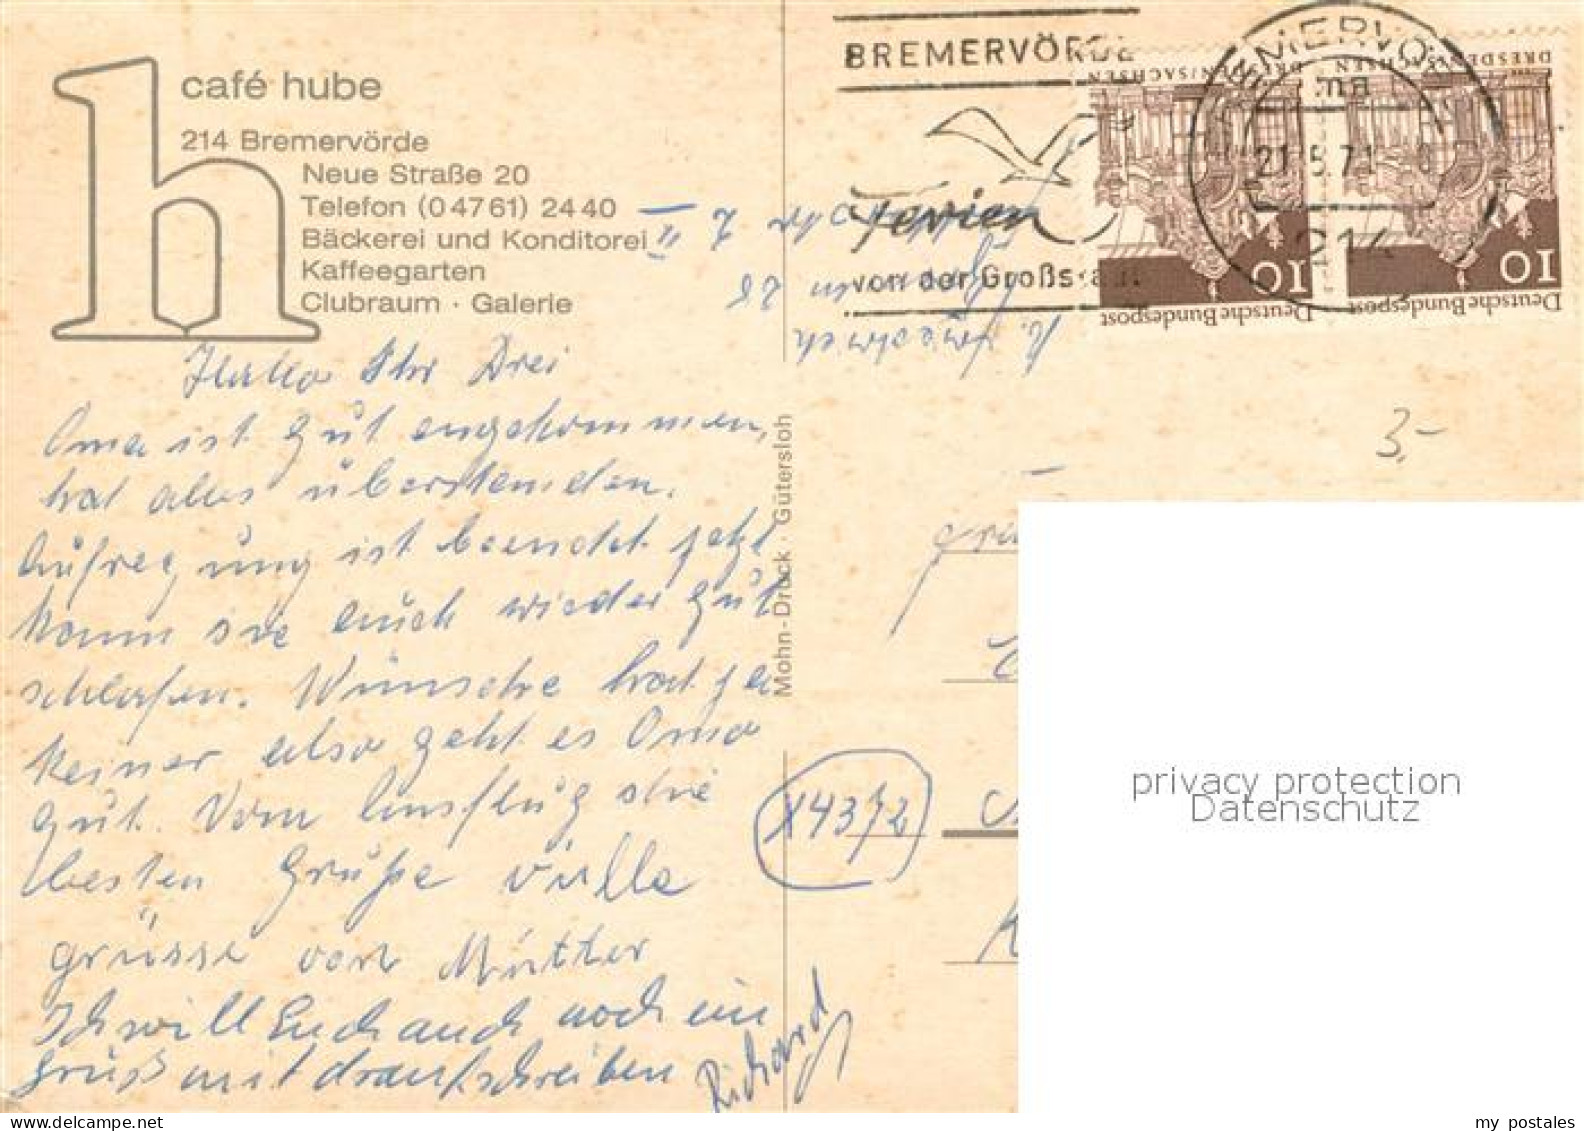 café hube
214 Bremervörde
Neue Straße 20
Telefon (0 47 61) 24 40
Bäckerei und Konditorei
Kaffeegarten
Clubraum · Galerie
Hallo Ihr Drei
Oma ist gut angekommen,
hat alles überstanden.
Aufregung ist beendet jetzt
kann sie auch wieder gut
schlafen. Wünsche hat ja
keiner also geht es Oma
gut. Vom Ausflug die
besten Grüße viele
grüsse von Mutter
Ich will Euch auch noch ein
gruß mit draufschreiben
Richard
Mohn-Druck · Gütersloh
BREMERVÖRDE
Ferien
von der Großstadt
BREMERVÖ
ma
21.5.71
214
DRESDEN/SACHSEN
10
Deutsche Bundespost
DRESDEN/SACHSEN
10
Deutsche Bundespost
3,-
privacy protection
Datenschutz
my postales